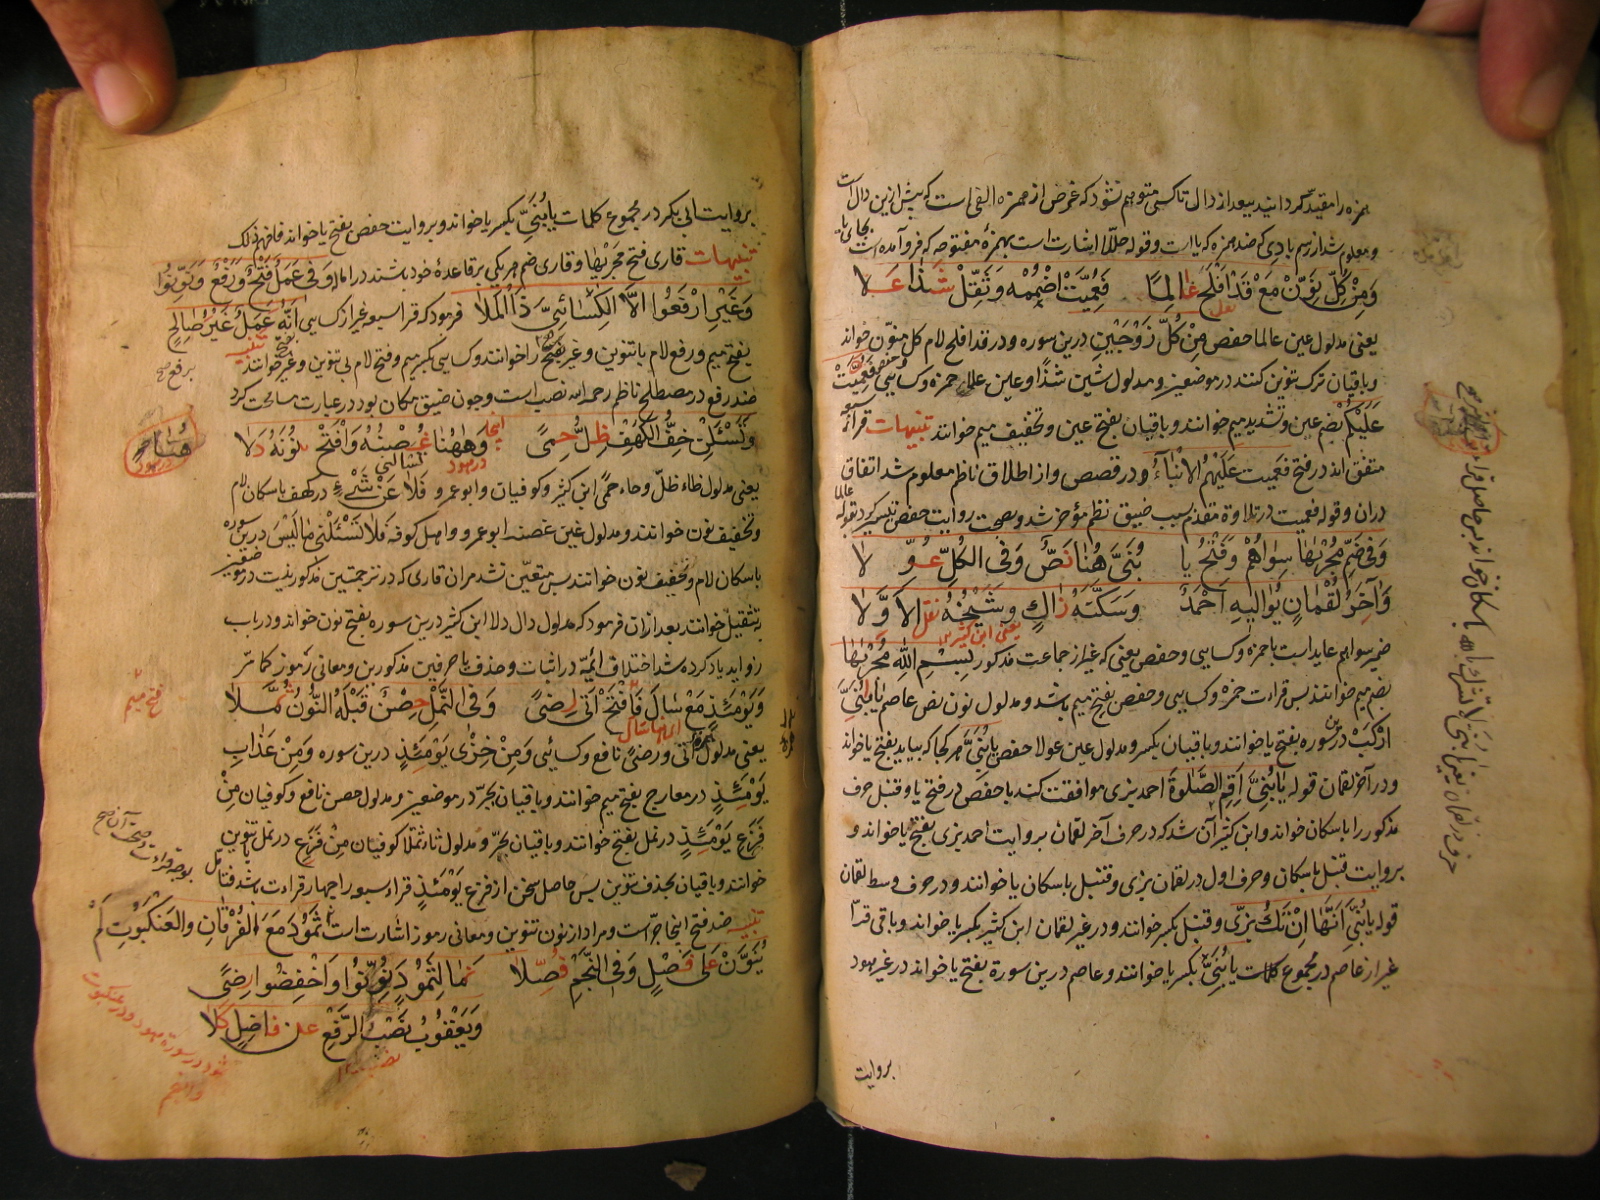 همزه را مقید گردانید ببعد از دال تا کسی متوهم نشود که غرض از همزه الفی است که پیش ازین دال است
و معلوم شد از رسم بادی که ضد همزه که یا است و قوله حللا اشارت است بهمزهٔ مفتوحه که فرو آمده است بجای یا
وَمِنْ كُلِّ نَوِّنْ مَعْ قَدَ افْلَحَ عَالِمًا فَعُمِّيَتِ اضْمُمْهُ وَثَقِّلْ شَذًا عَلَا
یعنی مدلول عین عالما حفص مِنْ كُلٍّ زَوْجَيْنِ درین سوره و در قد افلح لام کل منوّن خواند
و باقیان ترک تنوین کنند در موضعین و مدلول شین شذًا و عین علا حمزه و کسایی حفص فَعُمِّيَتْ
عَلَيْكُمْ بضم عین و تشدید میم خوانند و باقیان بفتح عین و تخفیف میم خوانند تنبیهات قراء سبعه
متفق اند در فتح فعمیت عَلَيْهِمُ الْأَنْبَاءُ در قصص و از اطلاق ناظم معلوم شد اتفاق
دران و قوله فعمیت در تلاوة مقدم بسبب ضیق نظم مؤخر شد و بصحت روایت حفص تیسیر کرد بقوله عالما
وَفِي ضَمِّ مَجْرَاهَا سِوَاهُمْ وَفَتْحُ يَا بُنَيَّ هُنَا نَصٌّ وَفِي الْكُلِّ عُوِّلَا
وَآخِرَ لُقْمَانٍ يُوَالِيهِ أَحْمَدُ وَسَكَّنَهُ زَاكٍ وَشَيْخُهُ الْأَوَّلَا
یعنی ابن کثیر
ضمیر سواهم عاید است با حمزه و کسایی و حفص یعنی که غیر از جماعت مذکور بِسْمِ اللّٰهِ مُجْرٰيهَا
بضم میم خوانند پس قراءت حمزه و کسایی و حفص بفتح میم باشد و مدلول نون نص عاصم يَا بُنَيَّ
ارْكَبْ درین سوره بفتح یا خوانند و باقیان بکسر و مدلول عین عولا حفص يَا بُنَيَّ هر کجا که بیاید بفتح یا خواند
و در آخر لقمان قوله يَا بُنَيَّ أَقِمِ الصَّلٰوةَ احمد بزی موافقت کند با حفص در فتح یا و قنبل حرف
مذکور را باسکان خواند و ابن کثیر آن شد که در حرف آخر لقمان بروایت احمد بزی بفتح یا خواند و
بروایت قنبل باسکان و حرف اول در لقمان بزی و قنبل باسکان یا خوانند و در حرف وسط لقمان
قوله يَا بُنَيَّ إِنَّهَا إِنْ تَكُ بزی و قنبل بکسر خوانند و در غیر لقمان ابن کثیر بکسر یا خواند و باقی قرّا
غیر از عاصم در مجموع کلمات يَا بُنَيَّ بکسر یا خوانند و عاصم درین سورة بفتح یا خواند در غیر هود
بروایت
بروایت ابی بکر در مجموع کلمات يَا بُنَيَّ بکسر یا خواند و بروایت حفص بفتح یا خواند فافهم ذلک
تنبیهات قاری فتح مجریها و قاری ضم هر یکی بر قاعدهٔ خود باشند در اماله وَفِي عَمَلٌ فَتْحٌ وَرَفْعٌ وَنَوِّنُوا
وَغَيْرَ ارْفَعُوا إِلَّا الْكِسَائِيَّ ذَا الْمَلَا فرمود که قراء سبعه غیر از کسایی إِنَّهُ عَمَلٌ غَيْرُ صَالِحٍ
بفتح میم و رفع لام با تنوین و غیر برفع را خوانند و کسایی بکسر میم و فتح لام بی تنوین و غیر خوانند تنبیه
ضد رفع در مصطلح ناظم رحمه الله نصب است و چون ضیق مکان بود در عبارت مسامحت کرد
وَتَسْئَلْنِ خِفُّ الْكَهْفِ ظِلٌّ حِمًى وَهٰهُنَا غُصْنُهُ وَافْتَحْ نُونَهُ دَلَا
یعنی مدلول ظاء ظلّ و حاء حمًی ابن کثیر و کوفیان و ابو عمرو فَلَا تَسْئَلْنِي عَنْ شَيْءٍ در کهف باسکان لام
و تخفیف نون خوانند و مدلول غین غصنه ابو عمرو و اهل کوفه فَلَا تَسْئَلْنِ مَا لَيْسَ درین سوره
باسکان لام و تخفیف نون خوانند پس متعین شد مران قاری که در ترجمتین مذکور نیست در موضعین
بتثقیل خوانند بعد ازان فرمود که مدلول دال دلا ابن کثیر درین سوره بفتح نون خواند و در باب
زواید یاد کرده شد اختلاف ائمه در اثبات و حذف یا حرفین مذکورین و معانی رموز کما مرّ
وَيَوْمَئِذٍ مَعْ سَالَ فَافْتَحْ أَتَى رِضًى وَفِي النَّمْلِ حِصْنٌ قَبْلَهُ النُّونُ ثُمِّلَا
یعنی مدلول همزه اتی و رضًی نافع و کسائی وَمِنْ خِزْيِ يَوْمَئِذٍ درین سوره وَمِنْ عَذَابِ
يَوْمِئِذٍ در معارج بفتح میم خوانند و باقیان بجرّ در موضعین و مدلول حصن نافع و کوفیان مِنْ
فَزَعِ يَوْمَئِذٍ در نمل بفتح خوانند و باقیان بجرّ و مدلول ثا ثملا کوفیان مِنْ فَزَعٍ در نمل با تنوین
خوانند و باقیان بحذف تنوین پس حاصل سخن از فزع يَوْمَئِذٍ قراء سبعه را چهار قراءت شد فتامّل
تنبیه ضد فتح اینجا جرّ است و مراد از نون تنوین و معانی رموز اشارت است ثَمُودَ مَعَ الْفُرْقَانِ وَالْعَنْكَبُوتِ لَمْ
يُنَوَّنْ عَلَى فَصْلٍ وَفِي النَّجْمِ فُصِّلَا نَمَا لِثَمُودٍ نَوِّنُوا وَاخْفِضُوا رِضًى
وَيَعْقُوبُ نَصْبُ الرَّفْعِ عَنْ فَاضِلٍ كَلَا
هنا
در هود
فتح میم
ثمود در سورة هود و در عنکبوت
و النجم